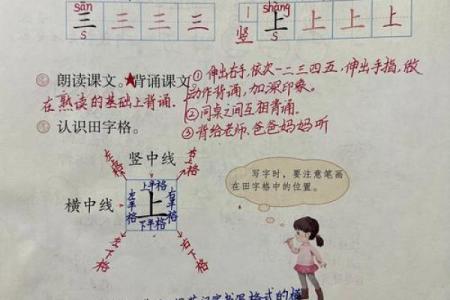 sān
三 三 三 三
s
shàng
竖
上 上 上 上
s
朗读课文。★背诵课文
①伸出右手,依次一二三四五,伸出手指,做
动作背诵,加深印象。
在熟读的基础上背诵.
②同桌之间互相背诵。
③背给老师.爸爸妈妈听
认识田字格。
竖中线
左上格
右上格
上半格
横中线
左半格
上
右半格
下半格
左下格
右下格
写字时,要注意笔画
在田字格中的位置。